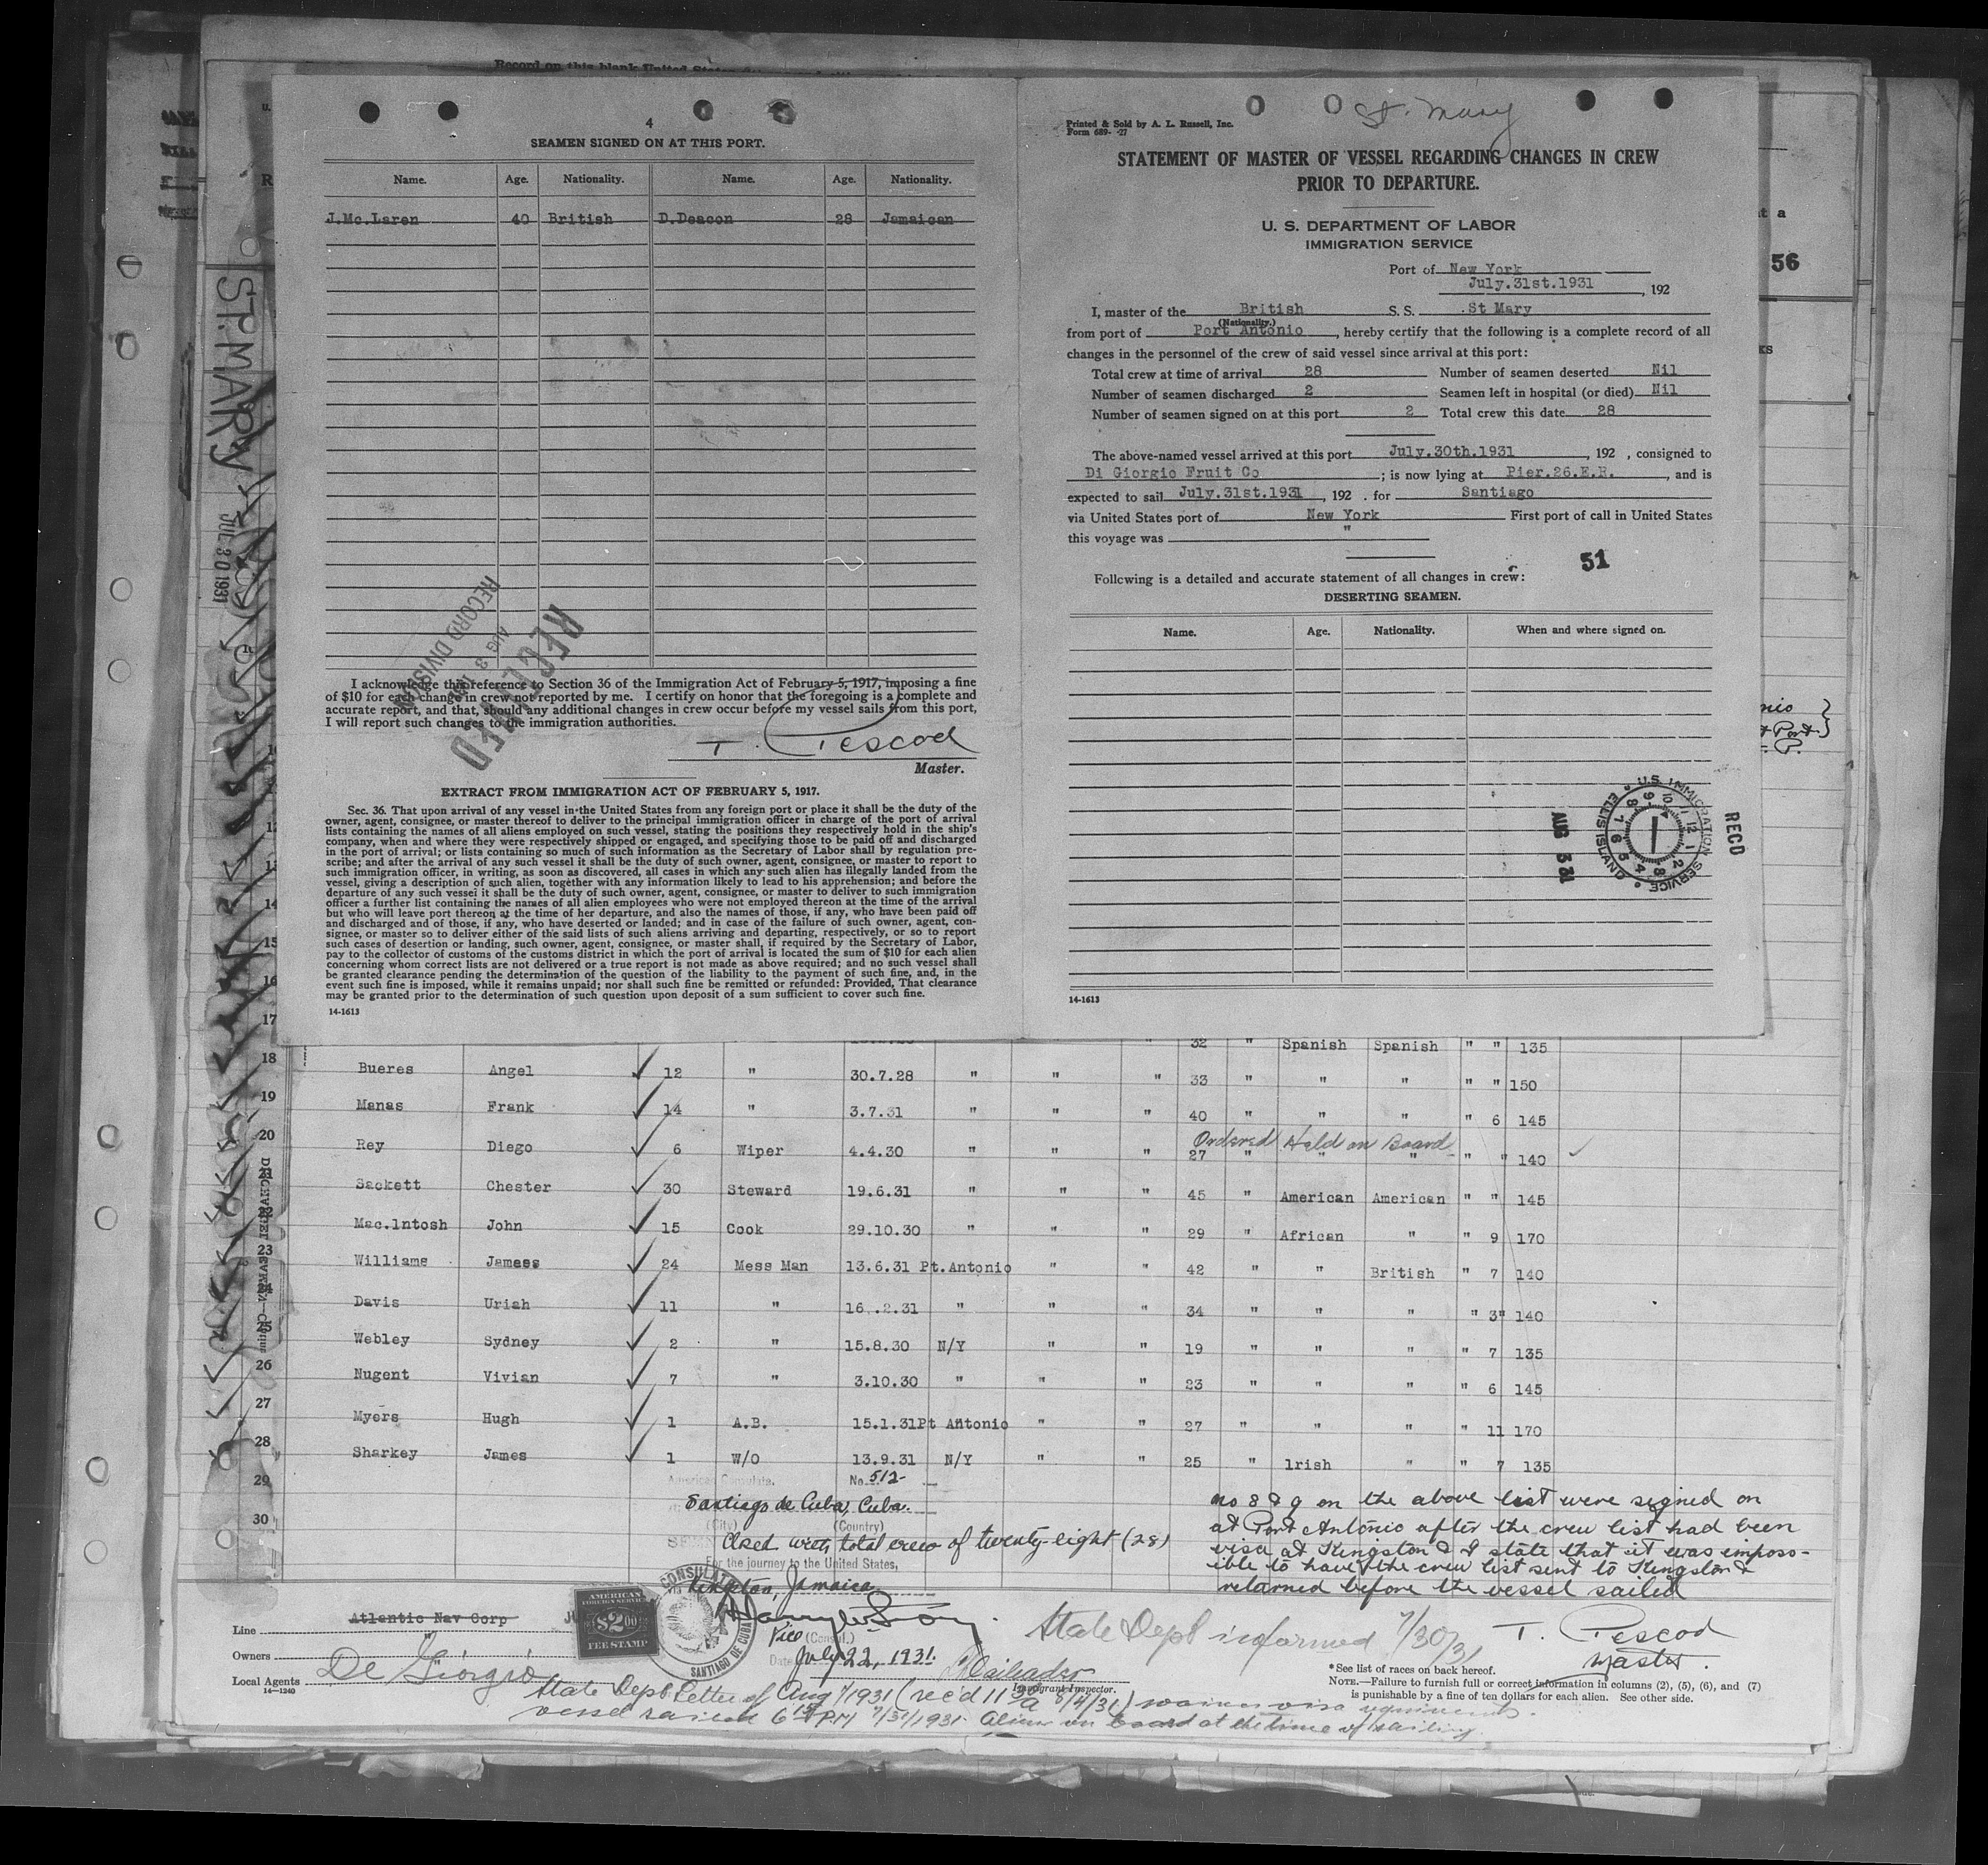 Record on this blank United States
4
SEAMEN SIGNED ON AT THIS PORT.
Name. Age. Nationality. Name. Age. Nationality.
J.Mc.Laren 40 British D.Deacon 28 Jamaican
I acknowledge this reference to Section 36 of the Immigration Act of February 5, 1917, imposing a fine
of $10 for each change in crew not reported by me. I certify on honor that the foregoing is a complete and
accurate report, and that, should any additional changes in crew occur before my vessel sails from this port,
I will report such changes to the immigration authorities.
RECEIVED
AUG 3
RECORD DIVISION
T. Pescod
Master.
EXTRACT FROM IMMIGRATION ACT OF FEBRUARY 5, 1917.
Sec. 36. That upon arrival of any vessel in the United States from any foreign port or place it shall be the duty of the
owner, agent, consignee, or master thereof to deliver to the principal immigration officer in charge of the port of arrival
lists containing the names of all aliens employed on such vessel, stating the positions they respectively hold in the ship's
company, when and where they were respectively shipped or engaged, and specifying those to be paid off and discharged
in the port of arrival; or lists containing so much of such information as the Secretary of Labor shall by regulation pre-
scribe; and after the arrival of any such vessel it shall be the duty of such owner, agent, consignee, or master to report to
such immigration officer, in writing, as soon as discovered, all cases in which any such alien has illegally landed from the
vessel, giving a description of such alien, together with any information likely to lead to his apprehension; and before the
departure of any such vessel it shall be the duty of such owner, agent, consignee, or master to deliver to such immigration
officer a further list containing the names of all alien employees who were not employed thereon at the time of the arrival
but who will leave port thereon at the time of her departure, and also the names of those, if any, who have been paid off
and discharged and of those, if any, who have deserted or landed; and in case of the failure of such owner, agent, con-
signee, or master so to deliver either of the said lists of such aliens arriving and departing, respectively, or so to report
such cases of desertion or landing, such owner, agent, consignee, or master shall, if required by the Secretary of Labor,
pay to the collector of customs of the customs district in which the port of arrival is located the sum of $10 for each alien
concerning whom correct lists are not delivered or a true report is not made as above required; and no such vessel shall
be granted clearance pending the determination of the question of the liability to the payment of such fine, and, in the
event such fine is imposed, while it remains unpaid; nor shall such fine be remitted or refunded: Provided, That clearance
may be granted prior to the determination of such question upon deposit of a sum sufficient to cover such fine.
14-1613
St. Mary
Printed & Sold by A. L. Russell, Inc.
Form 689- -27
STATEMENT OF MASTER OF VESSEL REGARDING CHANGES IN CREW
PRIOR TO DEPARTURE.
U. S. DEPARTMENT OF LABOR
IMMIGRATION SERVICE
Port of New York
July.31st.1931, 192
I, master of the British S. S. St Mary
(Nationality.)
from port of Port Antonio, hereby certify that the following is a complete record of all
changes in the personnel of the crew of said vessel since arrival at this port:
Total crew at time of arrival 28 Number of seamen deserted Nil
Number of seamen discharged 2 Seamen left in hospital (or died) Nil
Number of seamen signed on at this port 2 Total crew this date 28
The above-named vessel arrived at this port July.30th.1931, 192 , consigned to
Di Giorgio Fruit Co ; is now lying at Pier.26.E.R. , and is
expected to sail July.31st.1931, 192 . for Santiago
via United States port of New York First port of call in United States
this voyage was "
51
Following is a detailed and accurate statement of all changes in crew:
DESERTING SEAMEN.
Name. Age. Nationality. When and where signed on.
U.S. IMMIGRATION SERVICE ELLIS ISLAND
RECD
AUG 3 31
14-1613
56
ST. MARY
JUL 30 1931
32 " Spanish Spanish " " 135
18 Bueres Angel 12 " 30.7.28 " " " 33 " " " " " 150
19 Manas Frank 14 " 3.7.31 " " " 40 " " " " 6 145
Ordered Held on Board
20 Rey Diego 6 Wiper 4.4.30 " " " 27 " " " " " 140
21 Sackett Chester 30 Steward 19.6.31 " " " 45 " American American " " 145
22 Mac.lntosh John 15 Cook 29.10.30 " " " 29 " African " " 9 170
23 Williams Jamess 24 Mess Man 13.6.31 Pt.Antonio " " 42 " " British " 7 140
24 Davis Uriah 11 " 16.2.31 " " " 34 " " " " 3" 140
25 Webley Sydney 2 " 15.8.30 N/Y " " 19 " " " " 7 135
26 Nugent Vivian 7 " 3.10.30 " " " 23 " " " " 6 145
27 Myers Hugh 1 A.B. 15.1.31 Pt Antonio " " 27 " " " " 11 170
28 Sharkey James 1 W/O 13.9.31 N/Y " " 25 " lrish " " 7 135
29
30
American Consulate. No. 512
Santiago de Cuba, Cuba.
(City) (Country)
Closed with total crew of twenty-eight (28)
For the journey to the United States,
Kingston, Jamaica
Vice (Consul.)
Date July 22, 1931.
AMERICAN FOREIGN SERVICE $2.00 FEE STAMP
CONSULATE SANTIAGO DE CUBA
no 8 & 9 on the above list were signed on
at Port Antonio after the crew list had been
visa at Kingston & I state that it was imposs-
ible to have the crew list sent to Kingston &
returned before the vessel sailed
T. Pescod
Master.
State Dept informed 7/30/31
Line Atlantic Nav Corp
Owners "
Local Agents De Giorgio
14-1240
Immigrant Inspector.
*See list of races on back hereof.
NOTE.—Failure to furnish full or correct information in columns (2), (5), (6), and (7)
is punishable by a fine of ten dollars for each alien. See other side.
State Dept Letter of Aug 1/1931 (rec'd 8/4/31) waives visa requirements.
vessel sailed 6 PM 7/31/1931. Alien on board at the time of sailing.